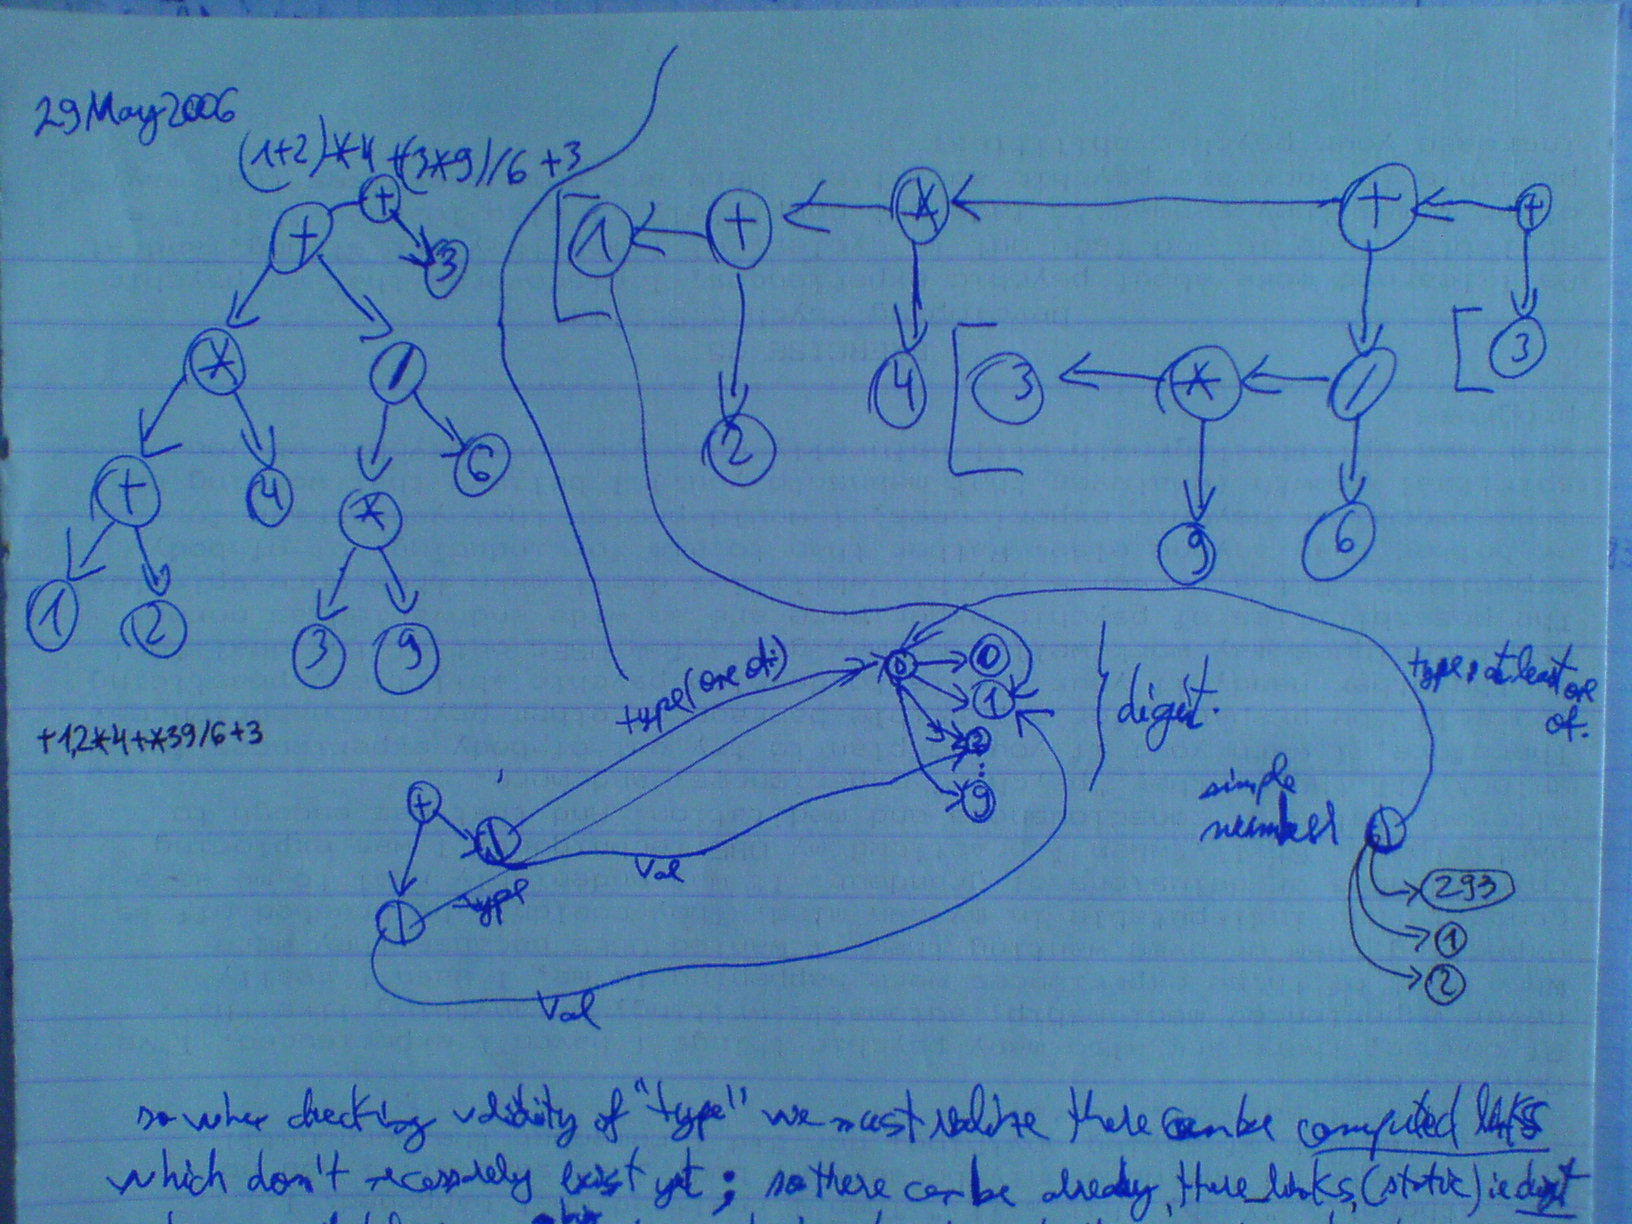 29 May 2006
(1+2)*4 +(3*9)/6 +3
+
+ 3
* /
+ 4 * 6
1 2 3 9
1 + * + +
2 4 3 * / 3
9 6
+1,2*4+*39/6+3
type (one of:)
0
1
2
:
9
digit.
type: at least one
of.
simple
number
293
1
2
+
Val
type
Val
so when checking validity of "type" we must realize there can be computed links
which don't necessarely exist yet; so there can be already there links, (static) ie digit